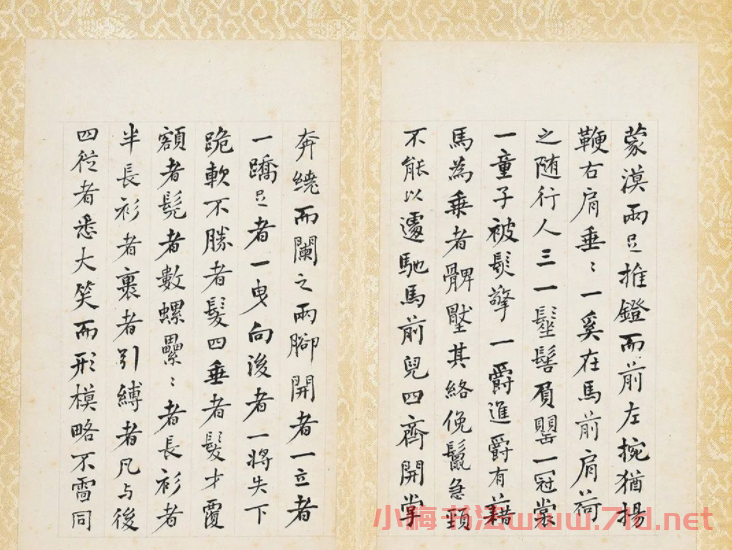 蒙漠兩足推鐙而前左捥猶揚
鞭右肩垂〻一奚在馬前肩荷
之随行人三一鬉髻負罌一冠裳
一童子被髮擎一爵進爵有藉
馬為乗者髀壓其絡俛鬣急頸
不能以遽馳馬前兒四齊開掌
奔繞而闌之兩腳開者一立者
一蹻足者一曳向後者一將失下
跪軟不勝者髮四垂者髮才覆
額者髡者數螺壘〻者長衫者
半長衫者裹者引縛者凡与後
四拉者悉大笑而形模略不雷同
小梅书法www.71d.net